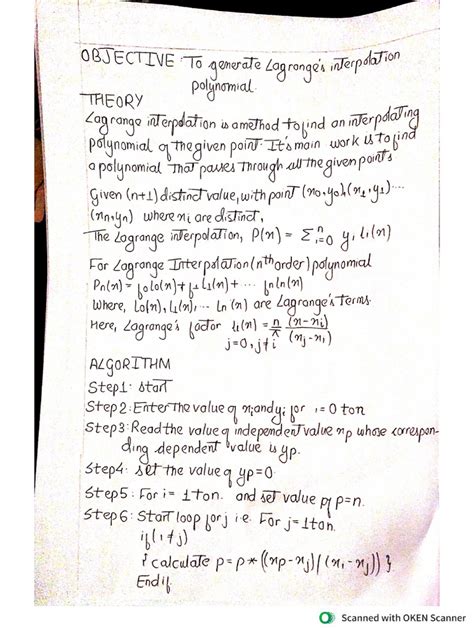 OBJECTIVE: To generate Lagrange's interpolation
polynomial.
THEORY
Lagrange interpolation is a method to find an interpolating
polynomial of the given point. It's main work is to find
a polynomial that passes through all the given points
Given (n+1) distinct value, with point (x0,y0), (x1,y1)...
(xn,yn) where xi are distinct,
The Lagrange interpolation, P(x) = Σ_{i=0}^{n} yi li(x)
For Lagrange Interpolation (nth order) polynomial
Pn(x) = f0l0(x) + f1l1(x) + ... fnln(x)
Where, l0(x), l1(x),... ln(x) are Lagrange's terms.
Here, Lagrange's factor li(x) = π^{n}_{j=0, j≠i} (x-xi)/(xj-xi)
ALGORITHM
Step1: Start
Step2: Enter the value of xi and yi for i=0 to n
Step3: Read the value of independent value xp whose correspon-
ding dependent value is yp.
Step4: set the value of yp=0.
Step5: For i= 1 to n. and set value of p=n.
Step6: Start loop for j i.e. For j=1 to n.
if (i≠j)
{ calculate p=p*((xp-xj)/(xi-xj)) }
End if.
Scanned with OKEN Scanner